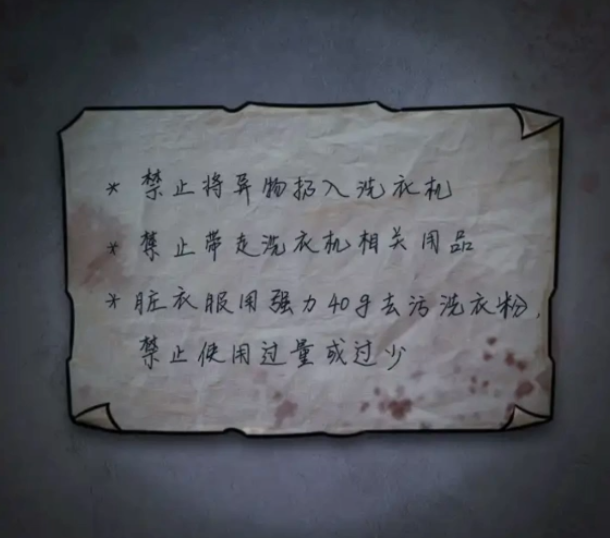 * 禁止将异物扔入洗衣机
* 禁止带走洗衣机相关用品
* 脏衣服用强力40g去污洗衣粉，
禁止使用过量或过少